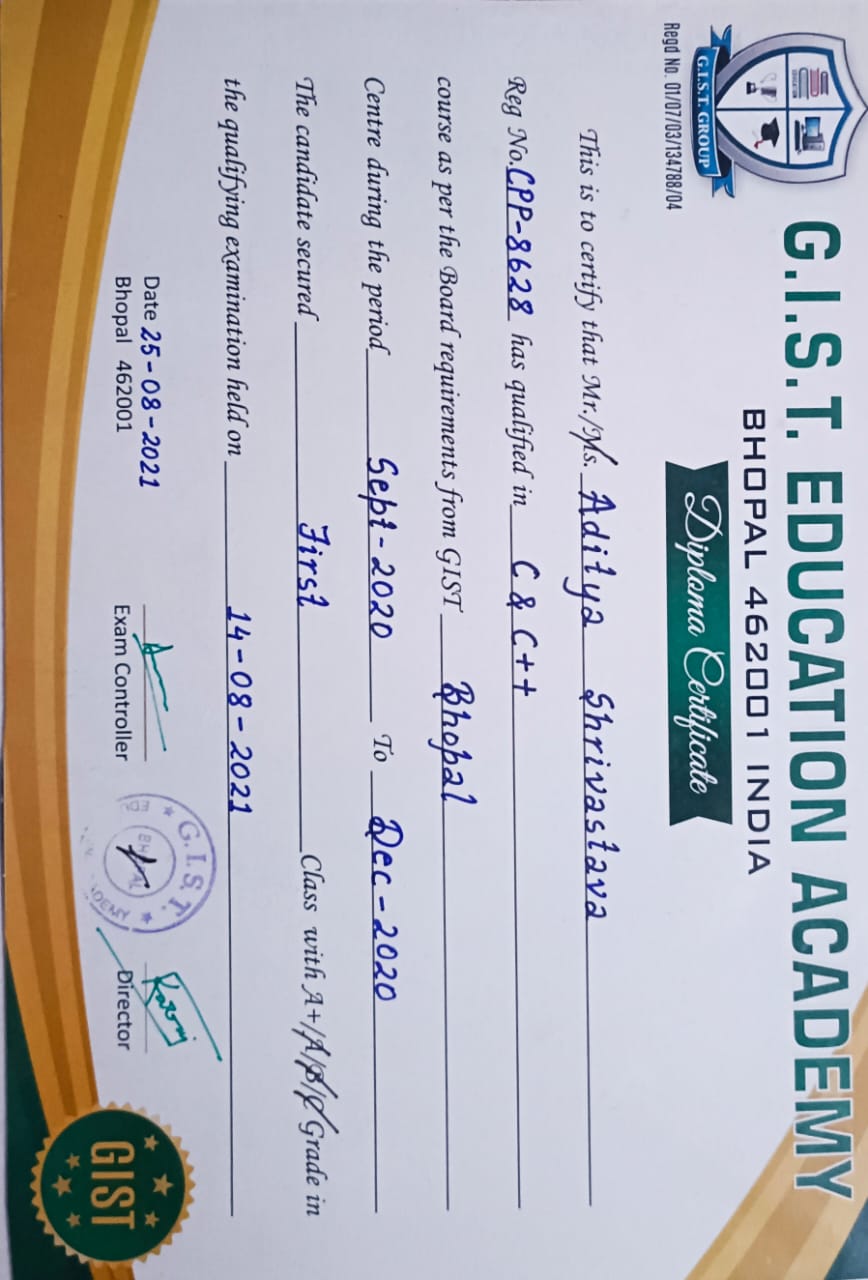 G.I.S.T. EDUCATION ACADEMY
BHOPAL 462001 INDIA
Diploma Certificate
EDUCATION
G.I.S.T. GROUP
Regd No. 01/07/03/134788/04
This is to certify that Mr./Ms. Aditya Shrivastava
Reg No. CPP-8628 has qualified in C & C++
course as per the Board requirements from GIST Bhopal
Centre during the period Sept-2020 To Dec-2020
The candidate secured First Class with A+/A/B/C Grade in
the qualifying examination held on 14-08-2021
Date 25-08-2021
Bhopal 462001
Exam Controller
G.I.S.T.
BHOPAL
Director
GIST